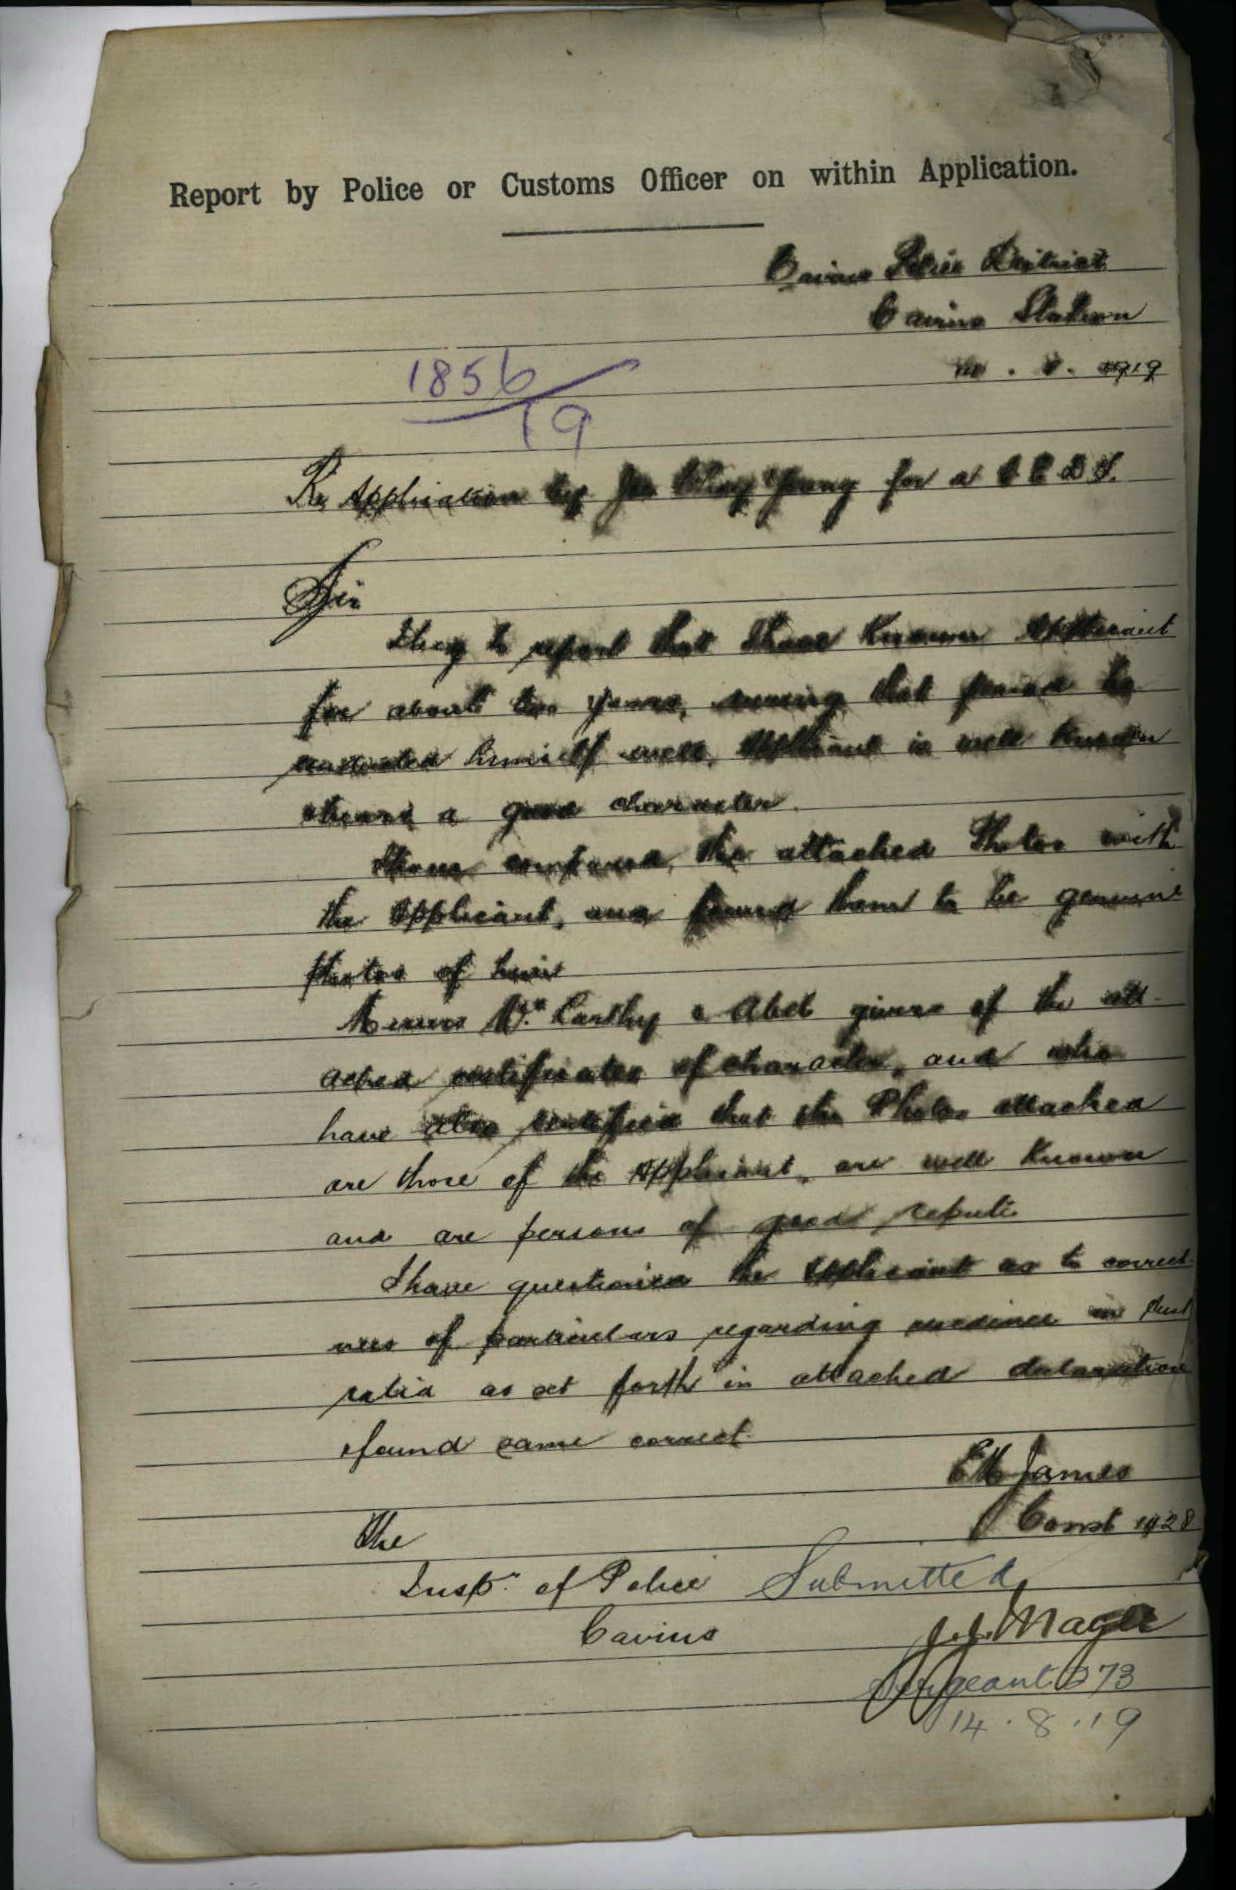 Report by Police or Customs Officer on within Application.
Cairns Police District
Cairns Station
1919
1856
19
Re Application by Young for a C E D T.
Sir
I beg to report that I have Known Applicant
for about two years, during that period he
conducted himself well, Applicant is well Known
& bears a good character.
I have compared, the attached Photos with
the Applicant, and found them to be genuine
photos of him
Messrs Mc Carthy & Abel givers of the att-
ached certificates of character, and who
have also certified that the Photos attached
are those of the Applicant, are well Known
and are persons of good repute
I have questioned the Applicant as to correct-
ness of particulars regarding residence in Aust
ralia as set forth in attached declaration
& found same correct.
James
Const 1928
The
Inspr. of Police
Submitted
Cairns
J.J. Magee
Sergeant 273
14.8.19